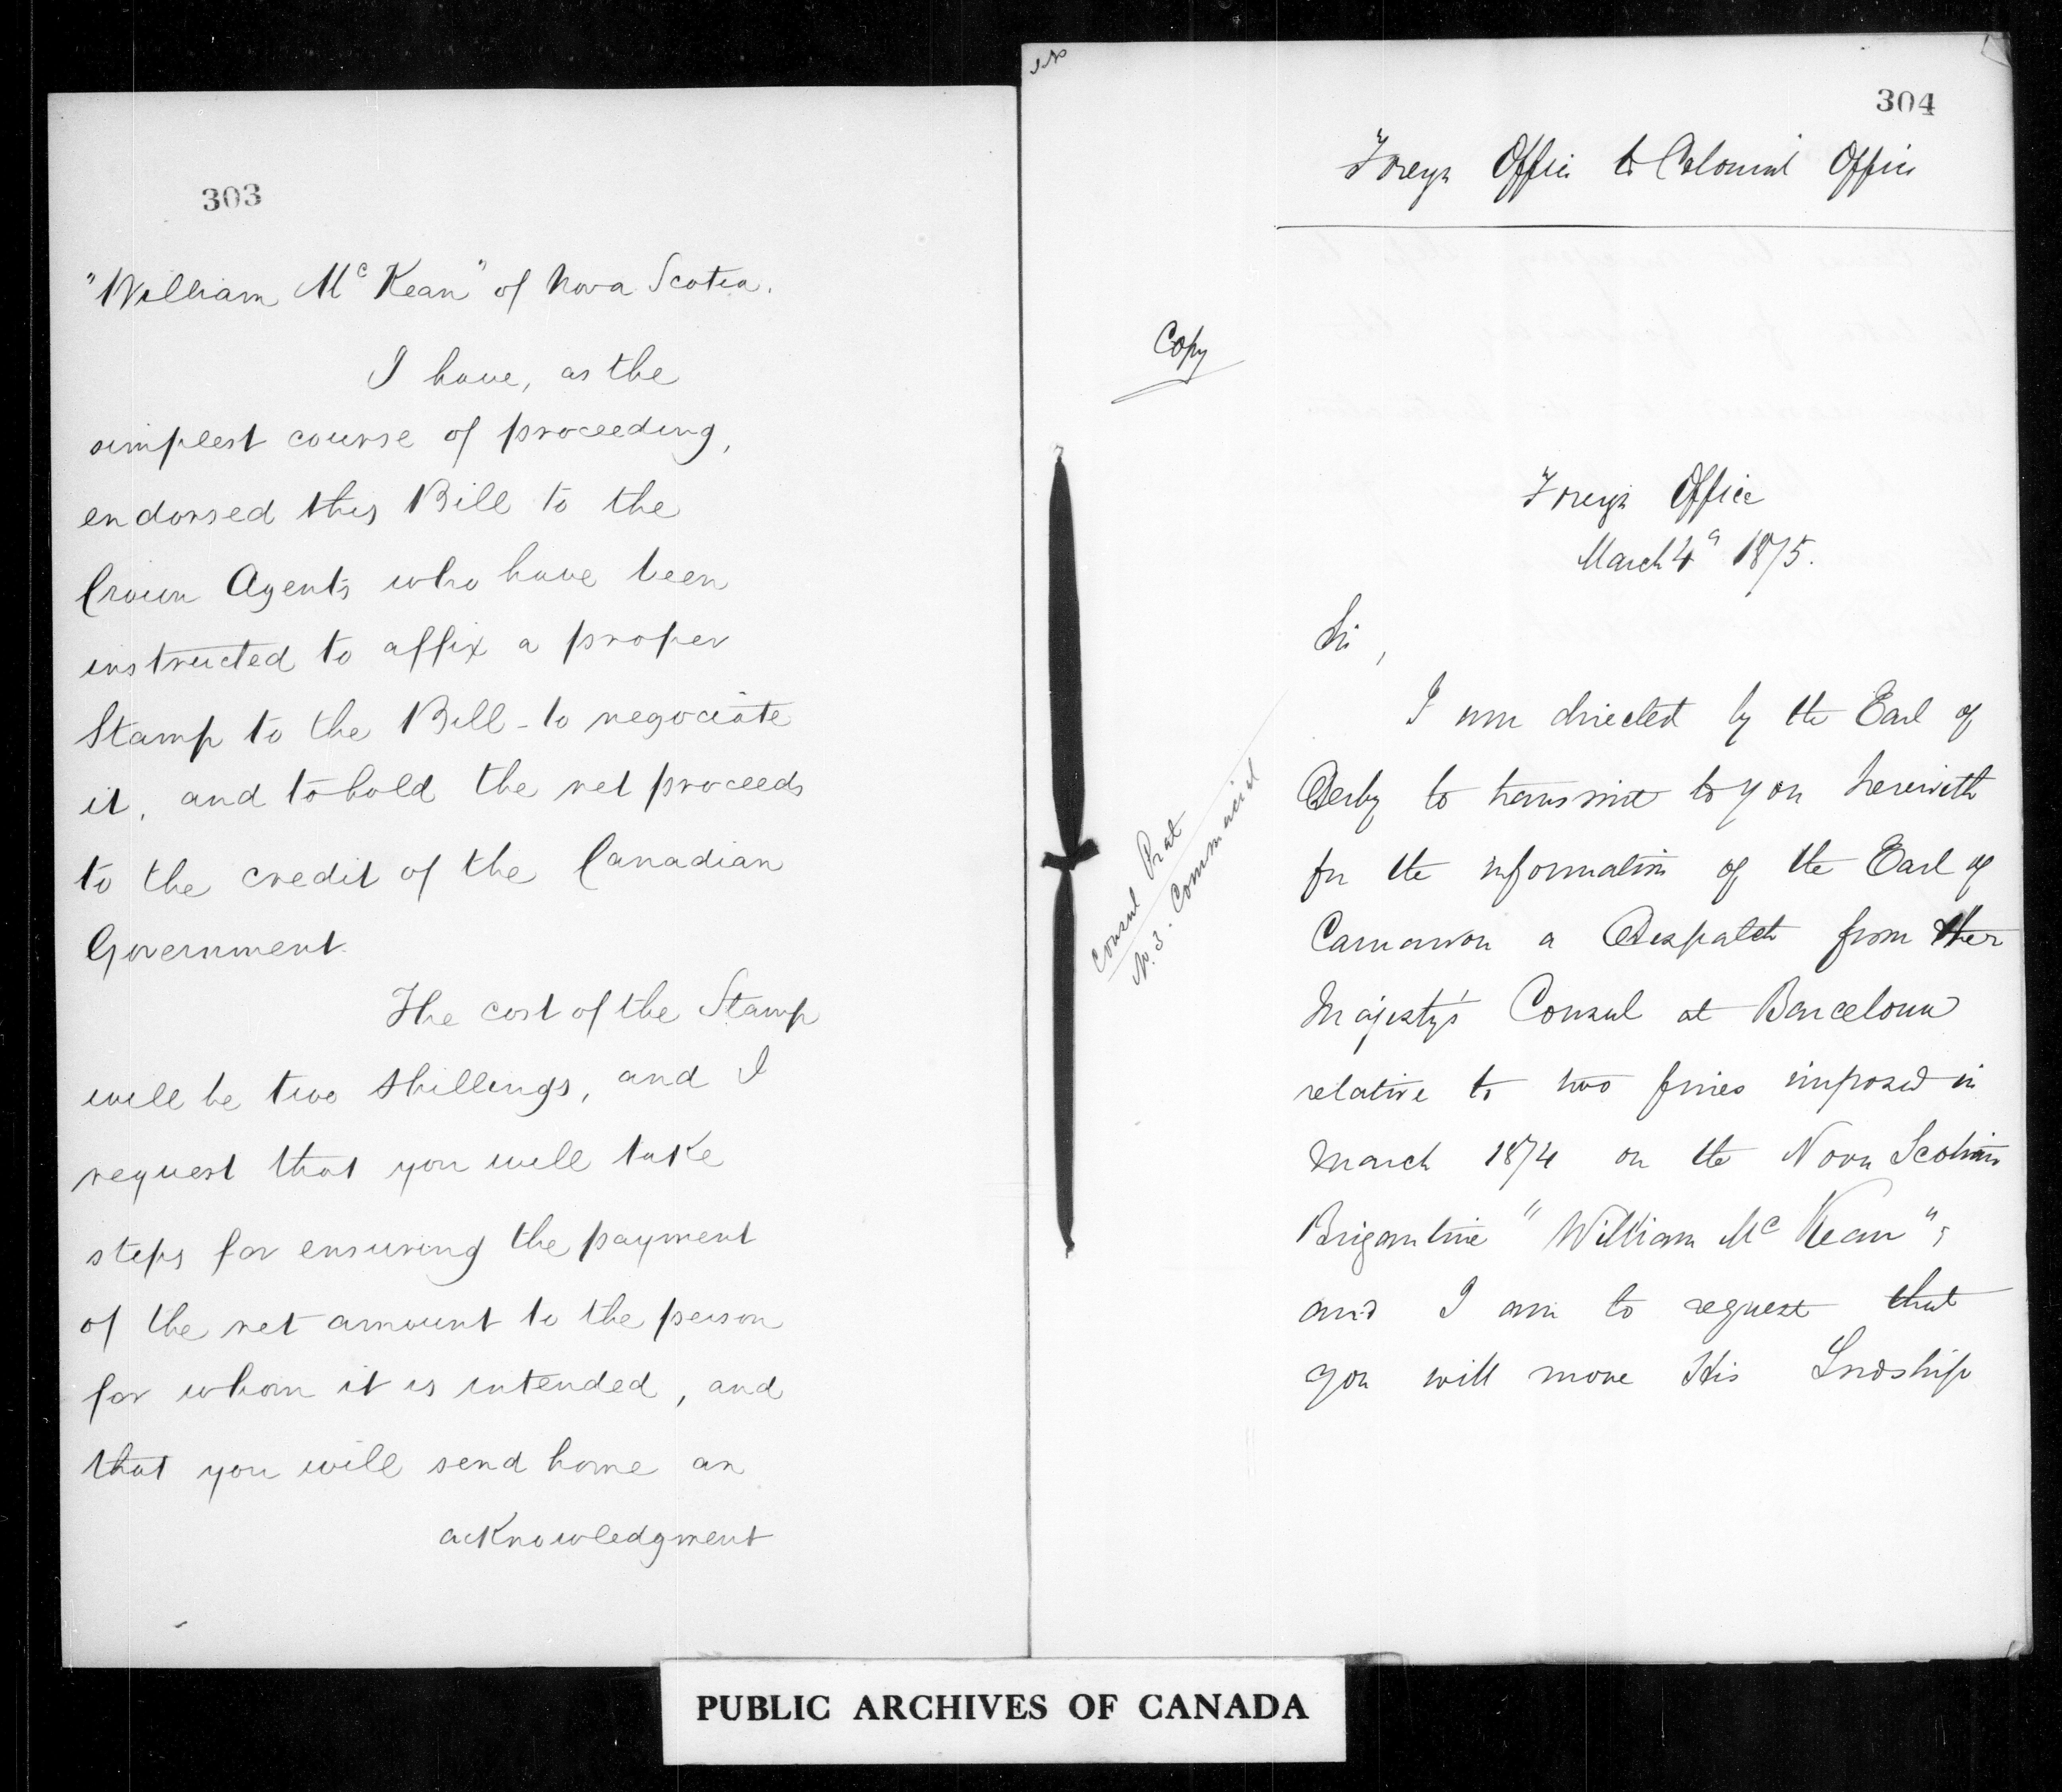 303
"William Mc Kean" of Nova Scotia.
I have, as the
simplest course of proceeding,
endorsed this Bill to the
Crown Agents who have been
instructed to affix a proper
Stamp to the Bill - to negociate
it, and to hold the net proceeds
to the credit of the Canadian
Government.
The cost of the Stamp
will be two shillings, and I
request that you will take
steps for ensuring the payment
of the net amount to the person
for whom it is intended, and
that you will send home an
acknowledgment
304
Foreign Office to Colonial Office
Copy
Foreign Office
March 4th 1875.
Sir,
I am directed by the Earl of
Derby to transmit to you herewith
for the information of the Earl of
Carnarvon a Despatch from Her
Majesty's Consul at Barcelona
relative to two fines imposed in
March 1874 on the Nova Scotian
Brigantine "William Mc Kean";
and I am to request that
you will move His Lordship
Consul Prat
No. 3. Commercial
PUBLIC ARCHIVES OF CANADA